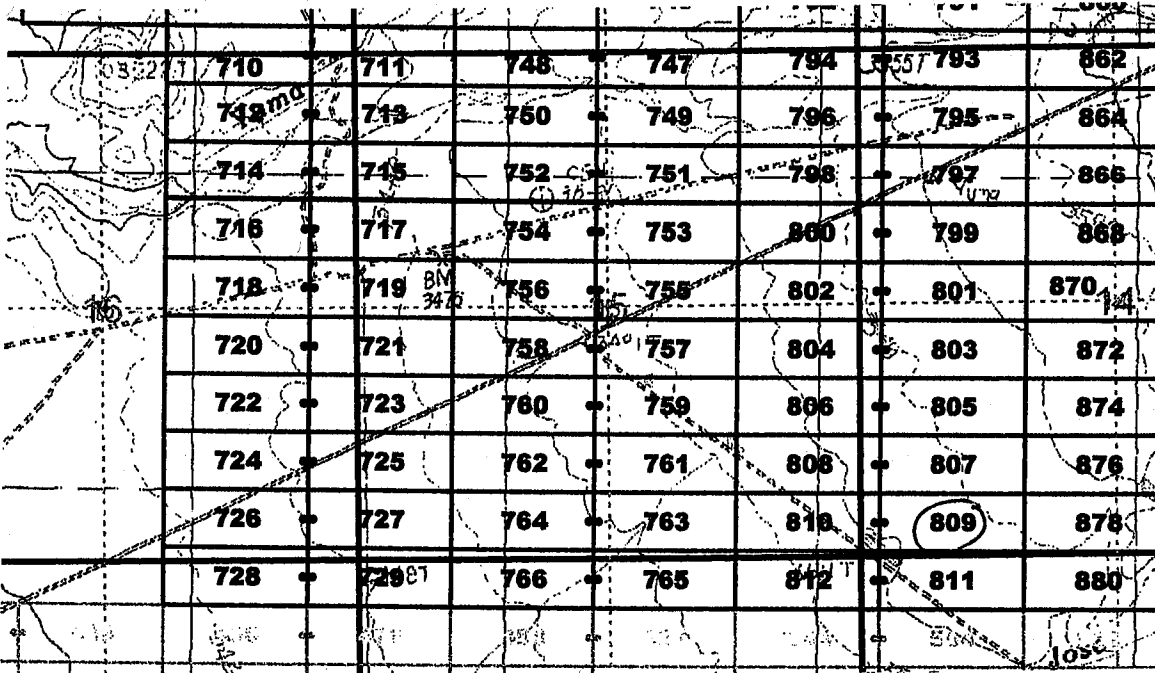 710 711 748 747 794 793 862
712 713 750 749 796 795 864
714 715 752 751 798 797 866
716 717 754 753 800 799 868
718 719 BM 3475 756 755 802 801 870
16 15 14
720 721 758 757 804 803 872
722 723 760 759 806 805 874
724 725 762 761 808 807 876
726 727 764 763 810 809 878
728 729 766 765 812 811 880
Jose